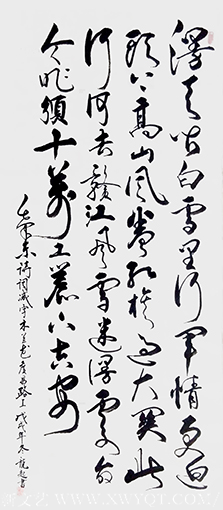 漫天皆白雪里行军情更迫
头上高山风卷红旗过大关此
行何去赣江风雪迷漫处命
令昨颁十万工农下吉安
毛泽东诗词减字木兰花广昌路上戊戌年冬龙超书